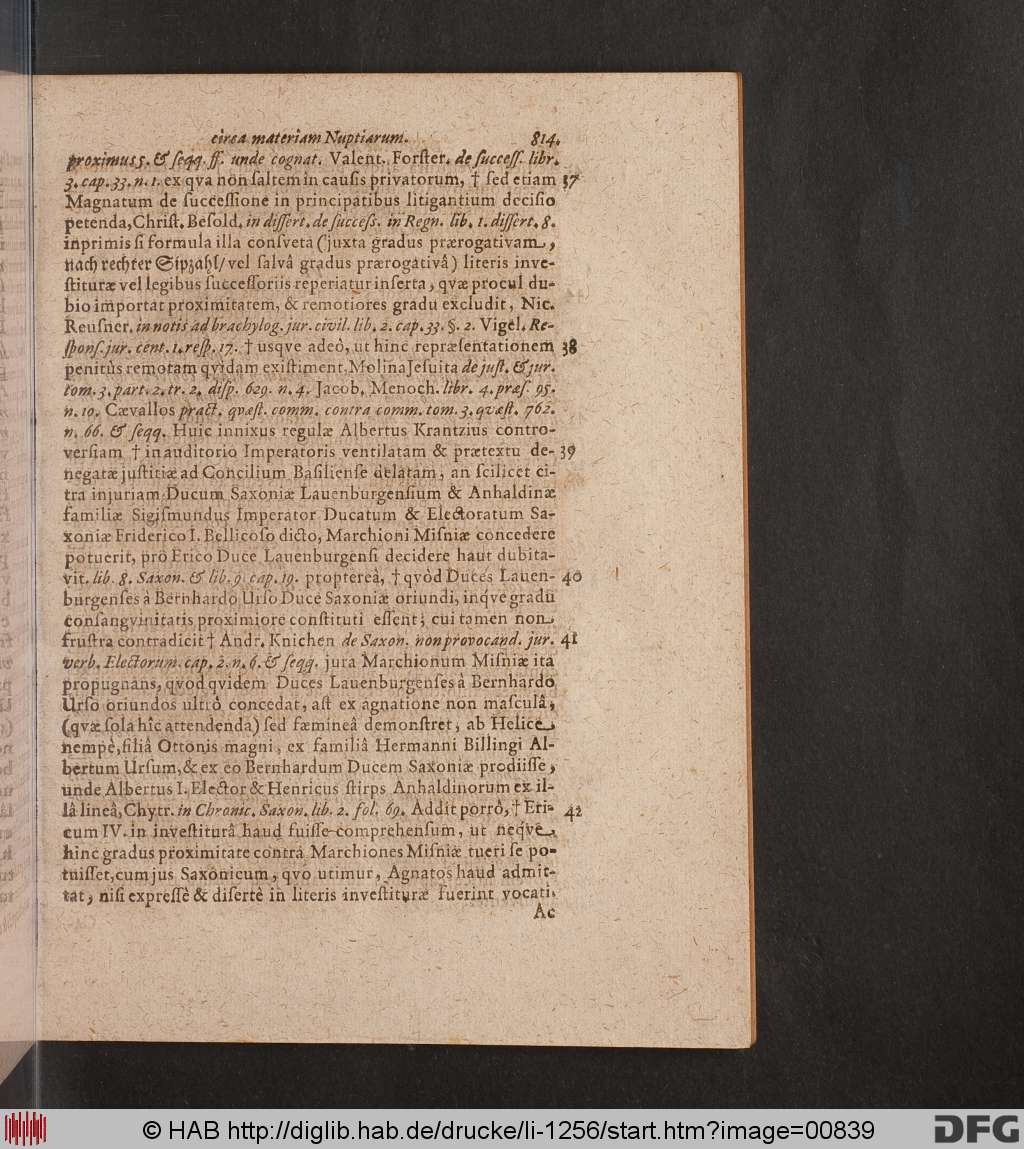 circa materiam Nuptiarum. 814.
proximus 5. & ſeqq. ff. unde cognat. Valent. Forſter. de ſucceſſ. libr.
3. cap. 33. n. 1. ex qva non ſaltem in cauſis privatorum, † ſed etiam 37
Magnatum de ſucceſſione in principatibus litigantium deciſio
petenda, Chriſt. Beſold. in diſſert. de ſucceſs. in Regn. lib. 1. diſſert. 8.
inprimis ſi formula illa conſveta (juxta gradus prærogativam,
nach rechter Sipzahl/ vel ſalvâ gradus prærogativâ) literis inve-
ſtituræ vel legibus ſucceſſoriis reperiatur inſerta, qvæ procul du-
bio importat proximitatem, & remotiores gradu excludit, Nic.
Reuſner. in notis ad brachylog. jur. civil. lib. 2. cap. 33. §. 2. Vigel. Re-
ſponſ. jur. cent. 1. reſp. 17. † usqve adeò, ut hinc repræſentationem 38
penitùs remotam qvidam exiſtiment, Molina Jeſuita de juſt. & jur.
tom. 3. part. 2. tr. 2. diſp. 629. n. 4. Jacob. Menoch. libr. 4. præſ. 95.
n. 10. Cævallos pract. qvæſt. comm. contra comm. tom. 3. qvæſt. 762.
n. 66. & ſeqq. Huic innixus regulæ Albertus Krantzius contro-
verſiam † in auditorio Imperatoris ventilatam & prætextu de- 39
negatæ juſtitiæ ad Concilium Baſilienſe delatam, an ſcilicet ci-
tra injuriam Ducum Saxoniæ Lauenburgenſium & Anhaldinæ
familiæ Sigiſmundus Imperator Ducatum & Electoratum Sa-
xoniæ Friderico I. Bellicoſo dicto, Marchioni Miſniæ concedere
potuerit, pro Erico Duce Lauenburgenſi decidere haut dubita-
vit. lib. 8. Saxon. & lib. 9. cap. 19. proptereà, † qvòd Duces Lauen- 40
burgenſes à Bernhardo Urſo Duce Saxoniæ oriundi, inqve gradu
conſangvinitatis proximiore conſtituti eſſent; cui tamen non
fruſtra contradicit † Andr. Knichen de Saxon. non provocand. jur. 41
verb. Electorum. cap. 2. n. 6. & ſeqq. jura Marchionum Miſniæ ita
propugnans, qvod qvidem Duces Lauenburgenſes à Bernhardo
Urſo oriundos ultrò concedat, aſt ex agnatione non maſculâ,
(qvæ ſola hîc attendenda) ſed fæmineâ demonſtret, ab Helice
nempè, filiâ Ottonis magni, ex familiâ Hermanni Billingi Al-
bertum Urſum, & ex eo Bernhardum Ducem Saxoniæ prodiiſſe,
unde Albertus I. Elector & Henricus ſtirps Anhaldinorum ex il-
lâ lineâ, Chytr. in Chronic. Saxon. lib. 2. fol. 69. Addit porrò, † Eri- 42
cum IV. in inveſtiturâ haud fuiſſe comprehenſum, ut neqve
hinc gradus proximitate contra Marchiones Miſniæ tueri ſe po-
tuiſſet, cum jus Saxonicum, qvo utimur, Agnatos haud admit-
tat, niſi expreſſè & diſertè in literis inveſtituræ fuerint vocati.
Ac
© HAB http://diglib.hab.de/drucke/li-1256/start.htm?image=00839
DFG